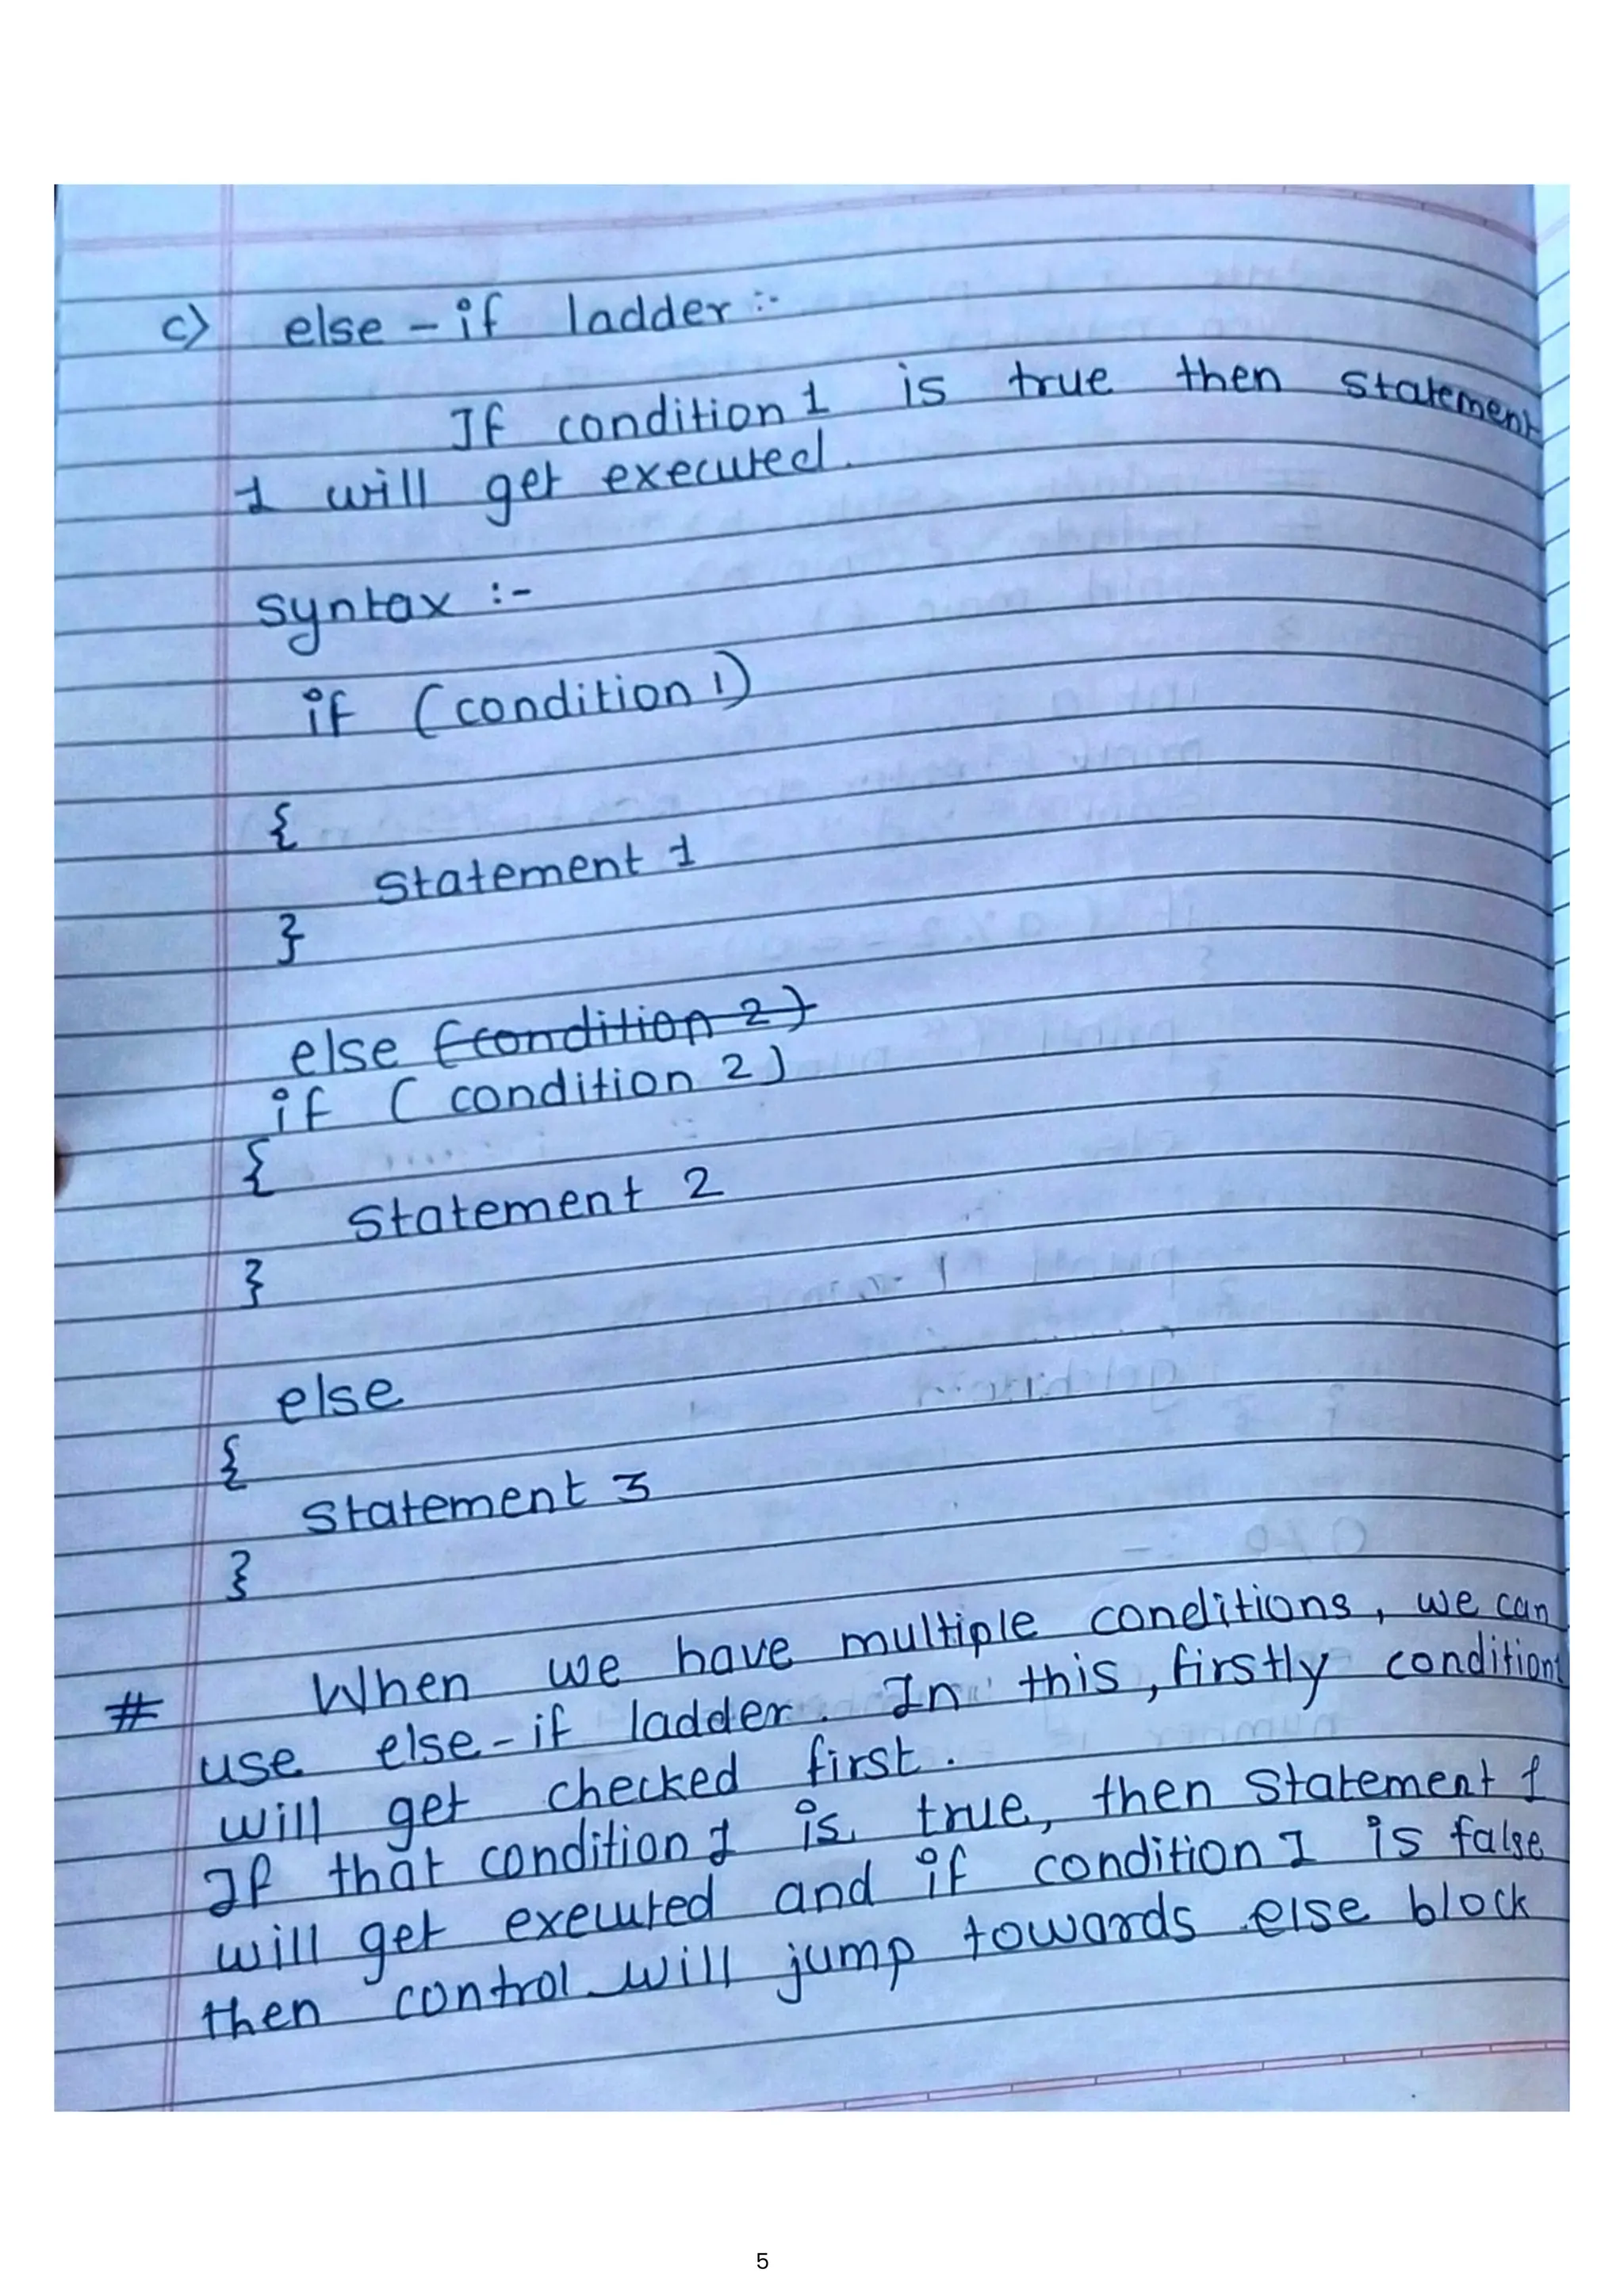 c) else-if ladder :-
If condition 1 is true then statement
1 will get executed.
syntax :-
if (condition 1)
{
statement 1
}
else (condition 2)
if (condition 2)
{
statement 2
}
else
{
statement 3
}
# When we have multiple conditions, we can
use else-if ladder. In this, firstly condition1
will get checked first.
If that condition 1 is true, then statement 1
will get executed and if condition 1 is false
then control will jump towards else block
5